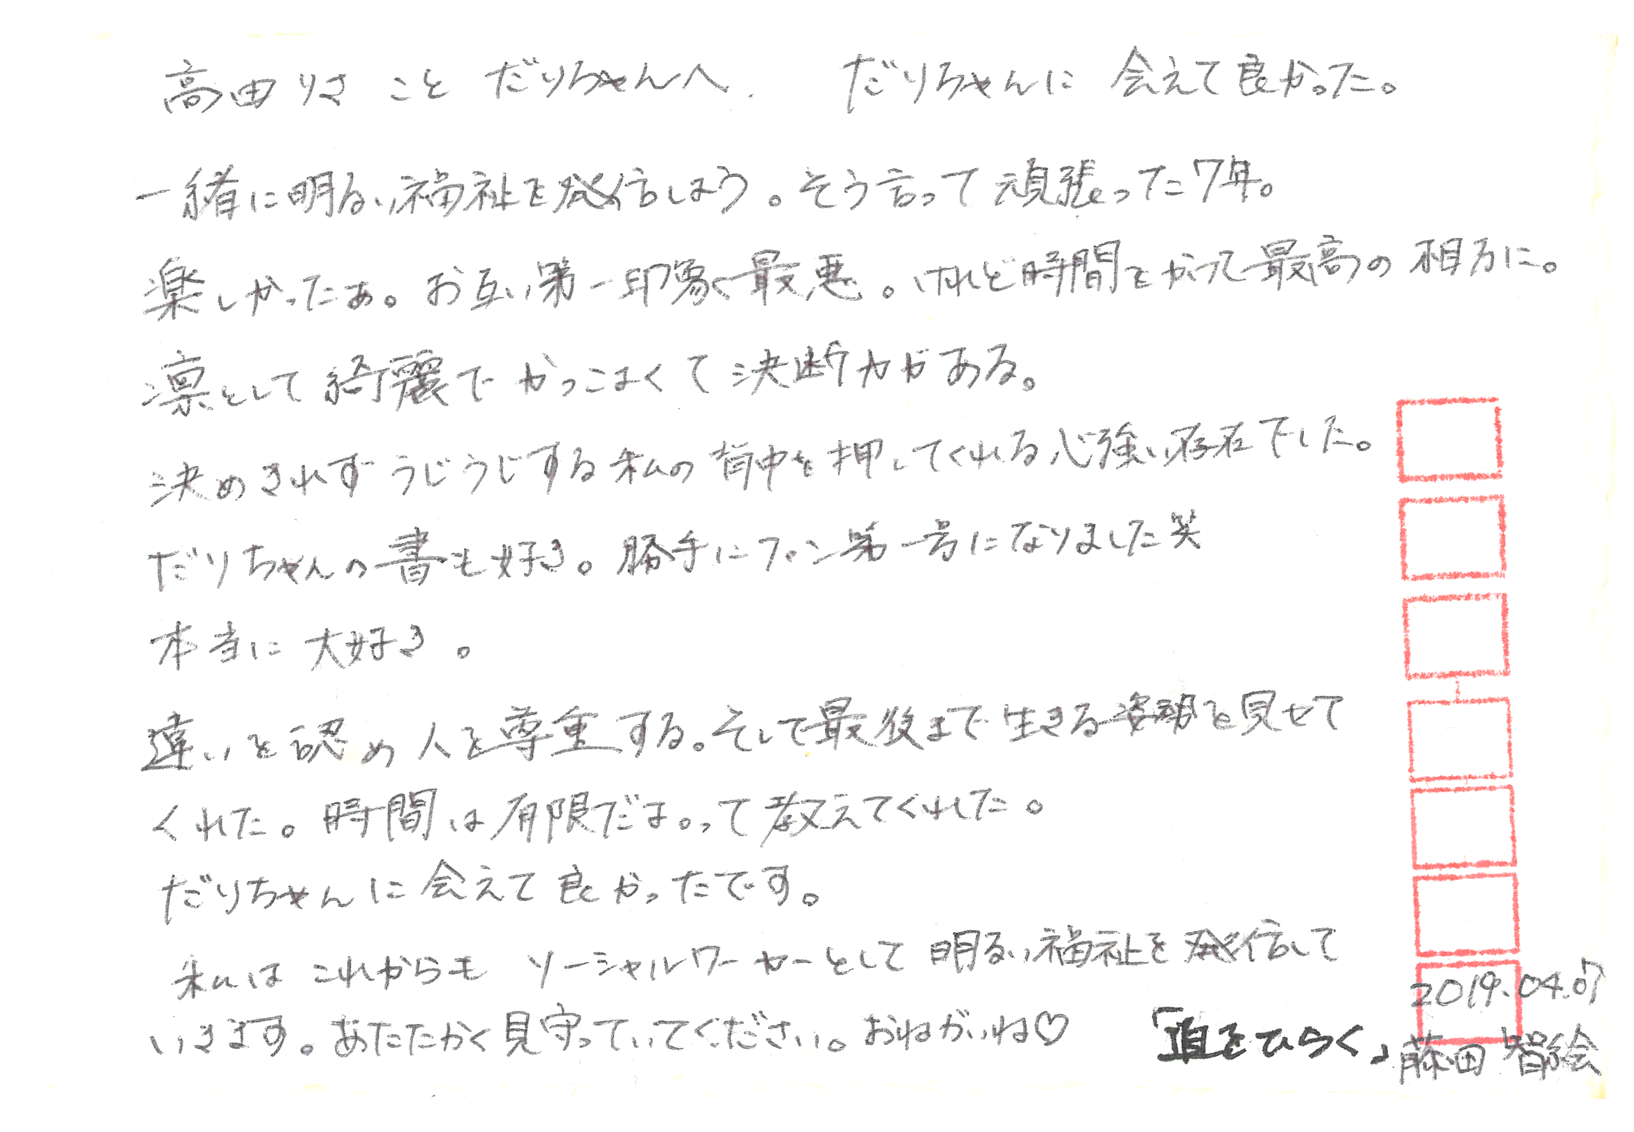 高田りさ こと だりちゃんへ. だりちゃんに 会えて良かった。
一緒に明るい福祉を発信しよう。そう言って頑張った7年。
楽しかったぁ。お互い第一印象は最悪。けれど時間をかけて最高の相方に。
凛として綺麗でかっこよくて決断力がある。
決めきれずうじうじする私の背中を押してくれる心強い存在でした。
だりちゃんの書も好き。勝手にファン第一号になりました笑
本当に大好き。
違いを認め人を尊重する。そして最後まで生きる姿勢を見せて
くれた。時間は有限だよ。って教えてくれた。
だりちゃんに会えて良かったです。
私はこれからも ソーシャルワーカーとして明るい福祉を発信して
いきます。あたたかく見守っていてください。おねがいね♡
2019.04.07
「道をひらく」藤田 智絵